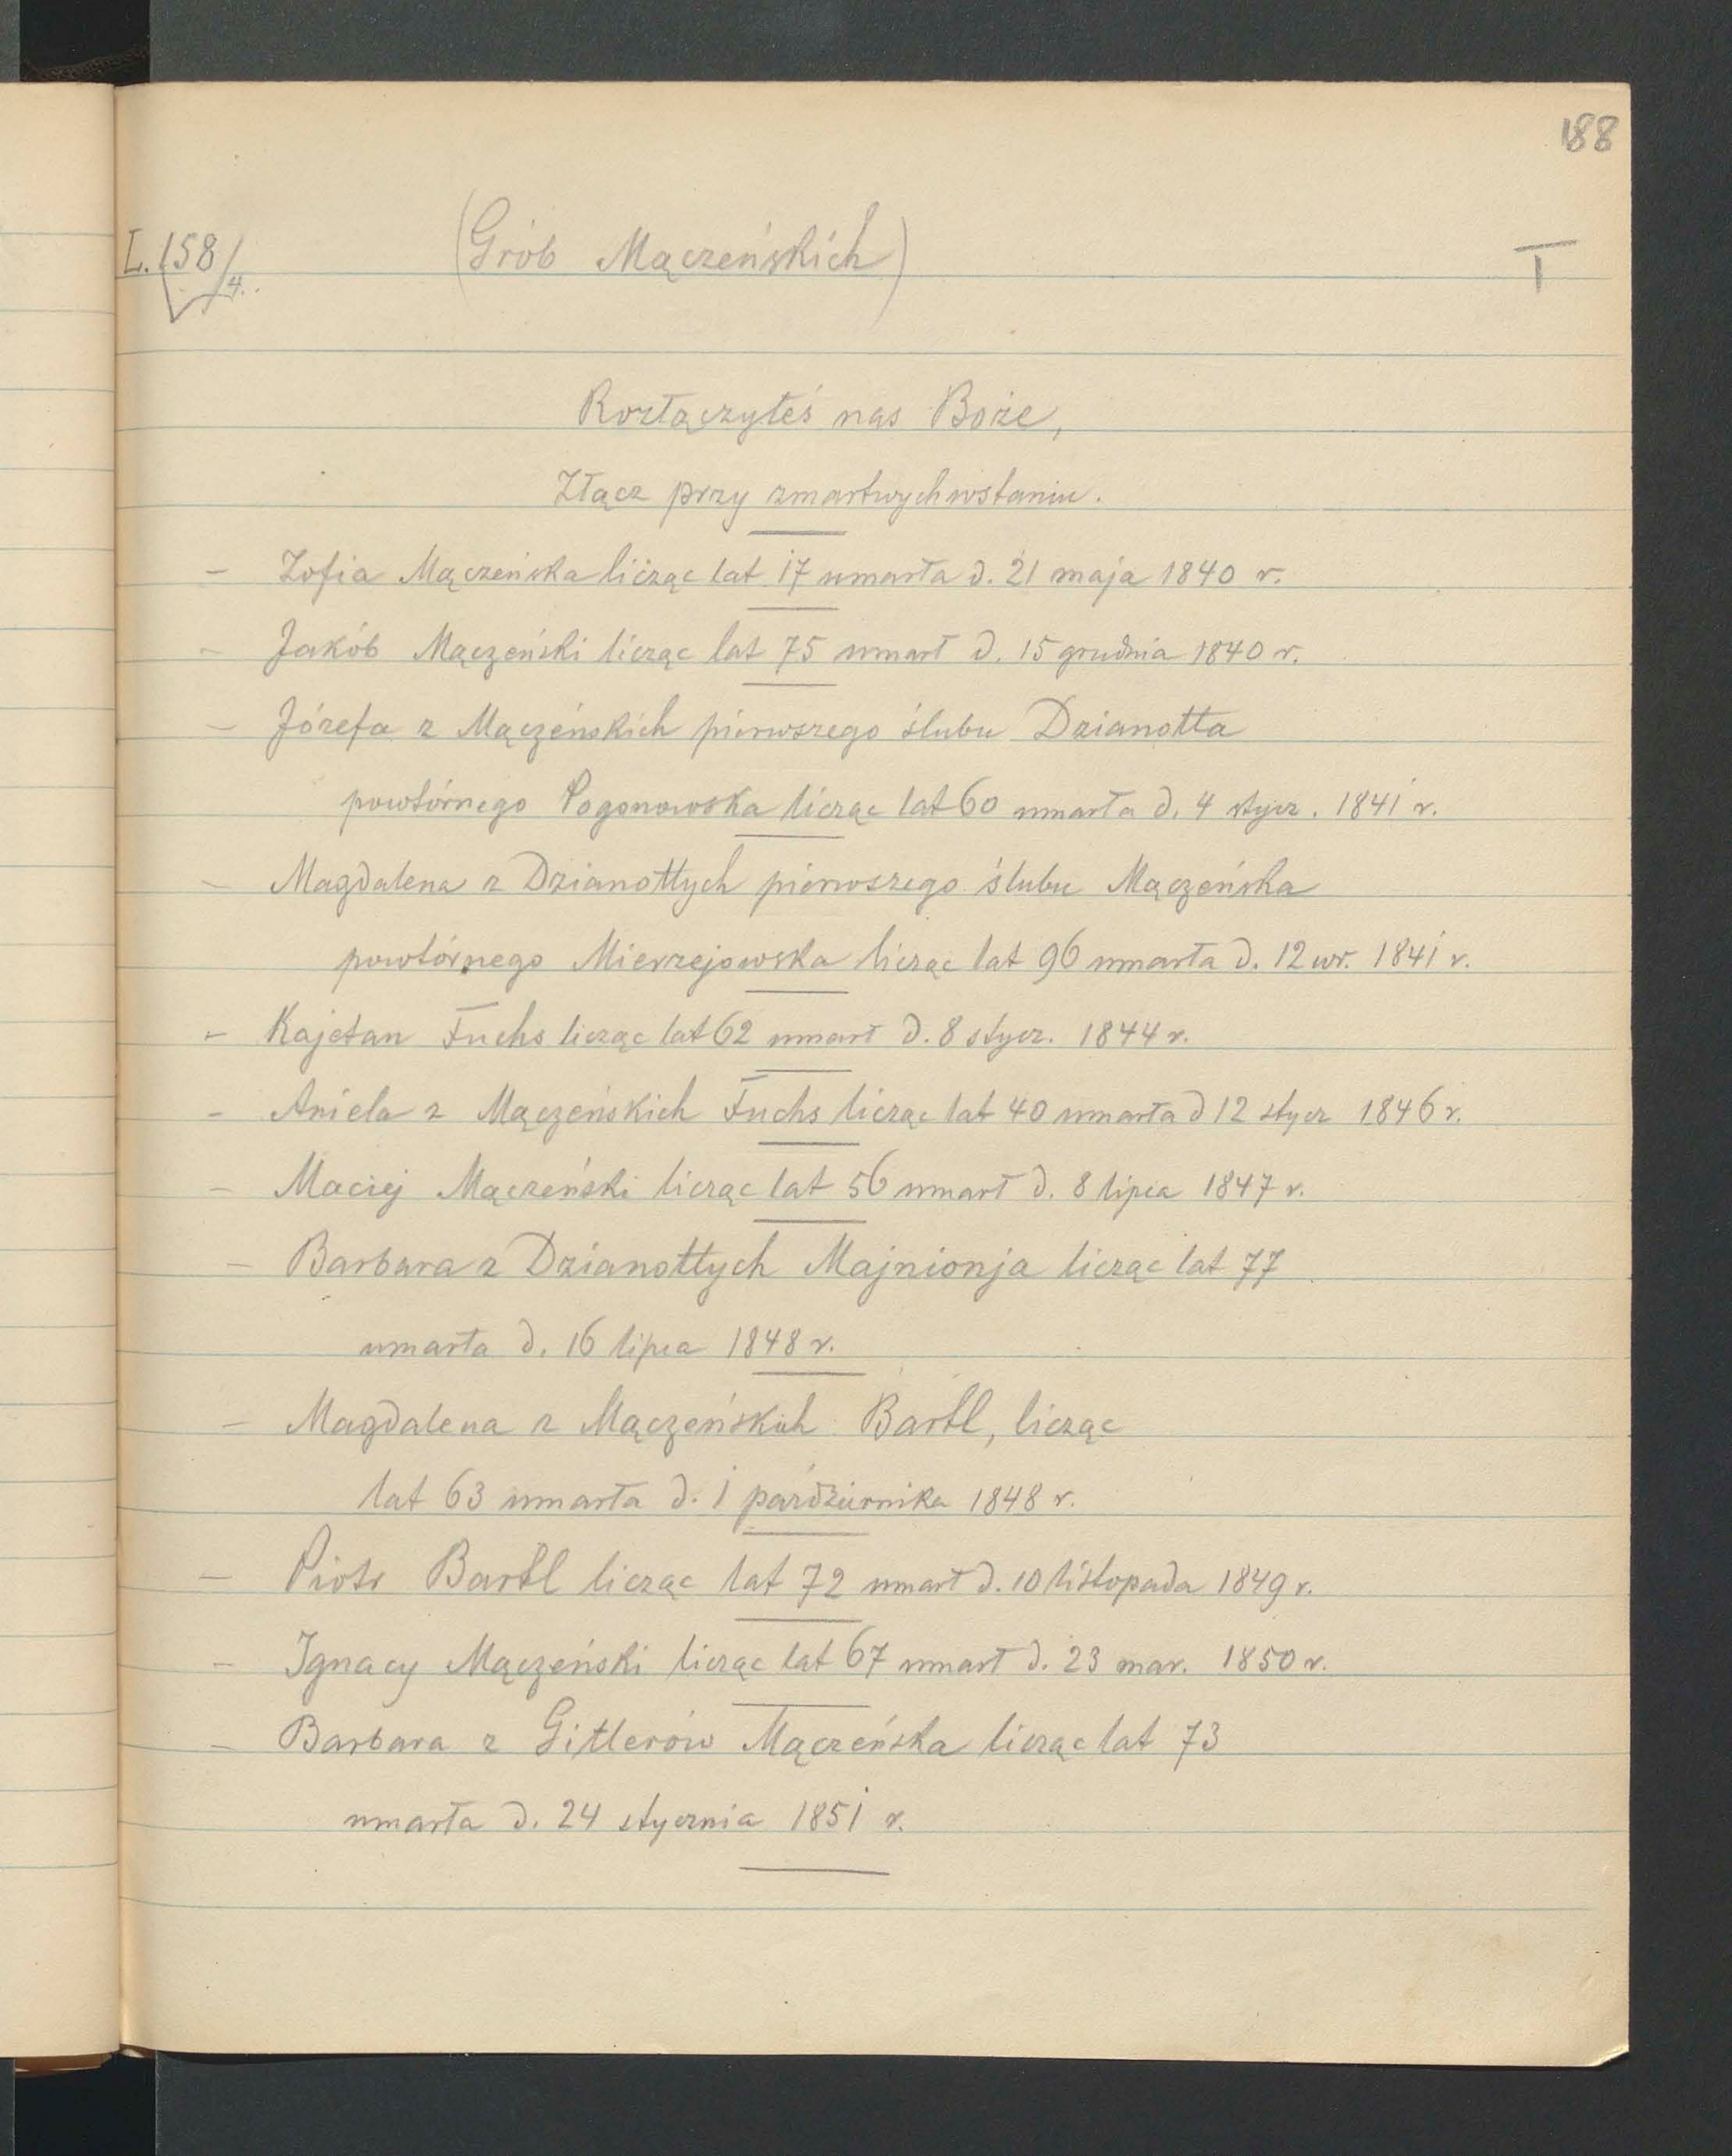 188
L. 158/4.
(Grób Mączeńskich)
T
Rozłączyłeś nas Boże,
Złącz przy zmartwychwstaniu.
– Zofia Mączeńska licząc lat 17 umarła d. 21 maja 1840 r.
– Jakób Mączeński licząc lat 75 umarł d. 15 grudnia 1840 r.
– Józefa z Mączeńskich pierwszego ślubu Dzianotta
powtórnego Pogonowska licząc lat 60 umarła d. 4 stycz. 1841 r.
– Magdalena z Dzianottych pierwszego ślubu Mączeńska
powtórnego Mierzejowska licząc lat 96 umarła d. 12 wr. 1841 r.
– Kajetan Fuchs licząc lat 62 umarł d. 8 stycz. 1844 r.
– Aniela z Mączeńskich Fuchs licząc lat 40 umarła d 12 stycz 1846 r.
– Maciej Mączeński licząc lat 56 umarł d. 8 lipca 1847 r.
– Barbara z Dzianottych Majnionja licząc lat 77
umarła d. 16 lipca 1848 r.
– Magdalena z Mączeńskich Bartl, licząc
lat 63 umarła d. 1 października 1848 r.
– Piotr Bartl licząc lat 72 umarł d. 10 listopada 1849 r.
– Ignacy Mączeński licząc lat 67 umarł d. 23 mar. 1850 r.
– Barbara z Gitlerów Mączeńska licząc lat 73
umarła d. 24 stycznia 1851 r.